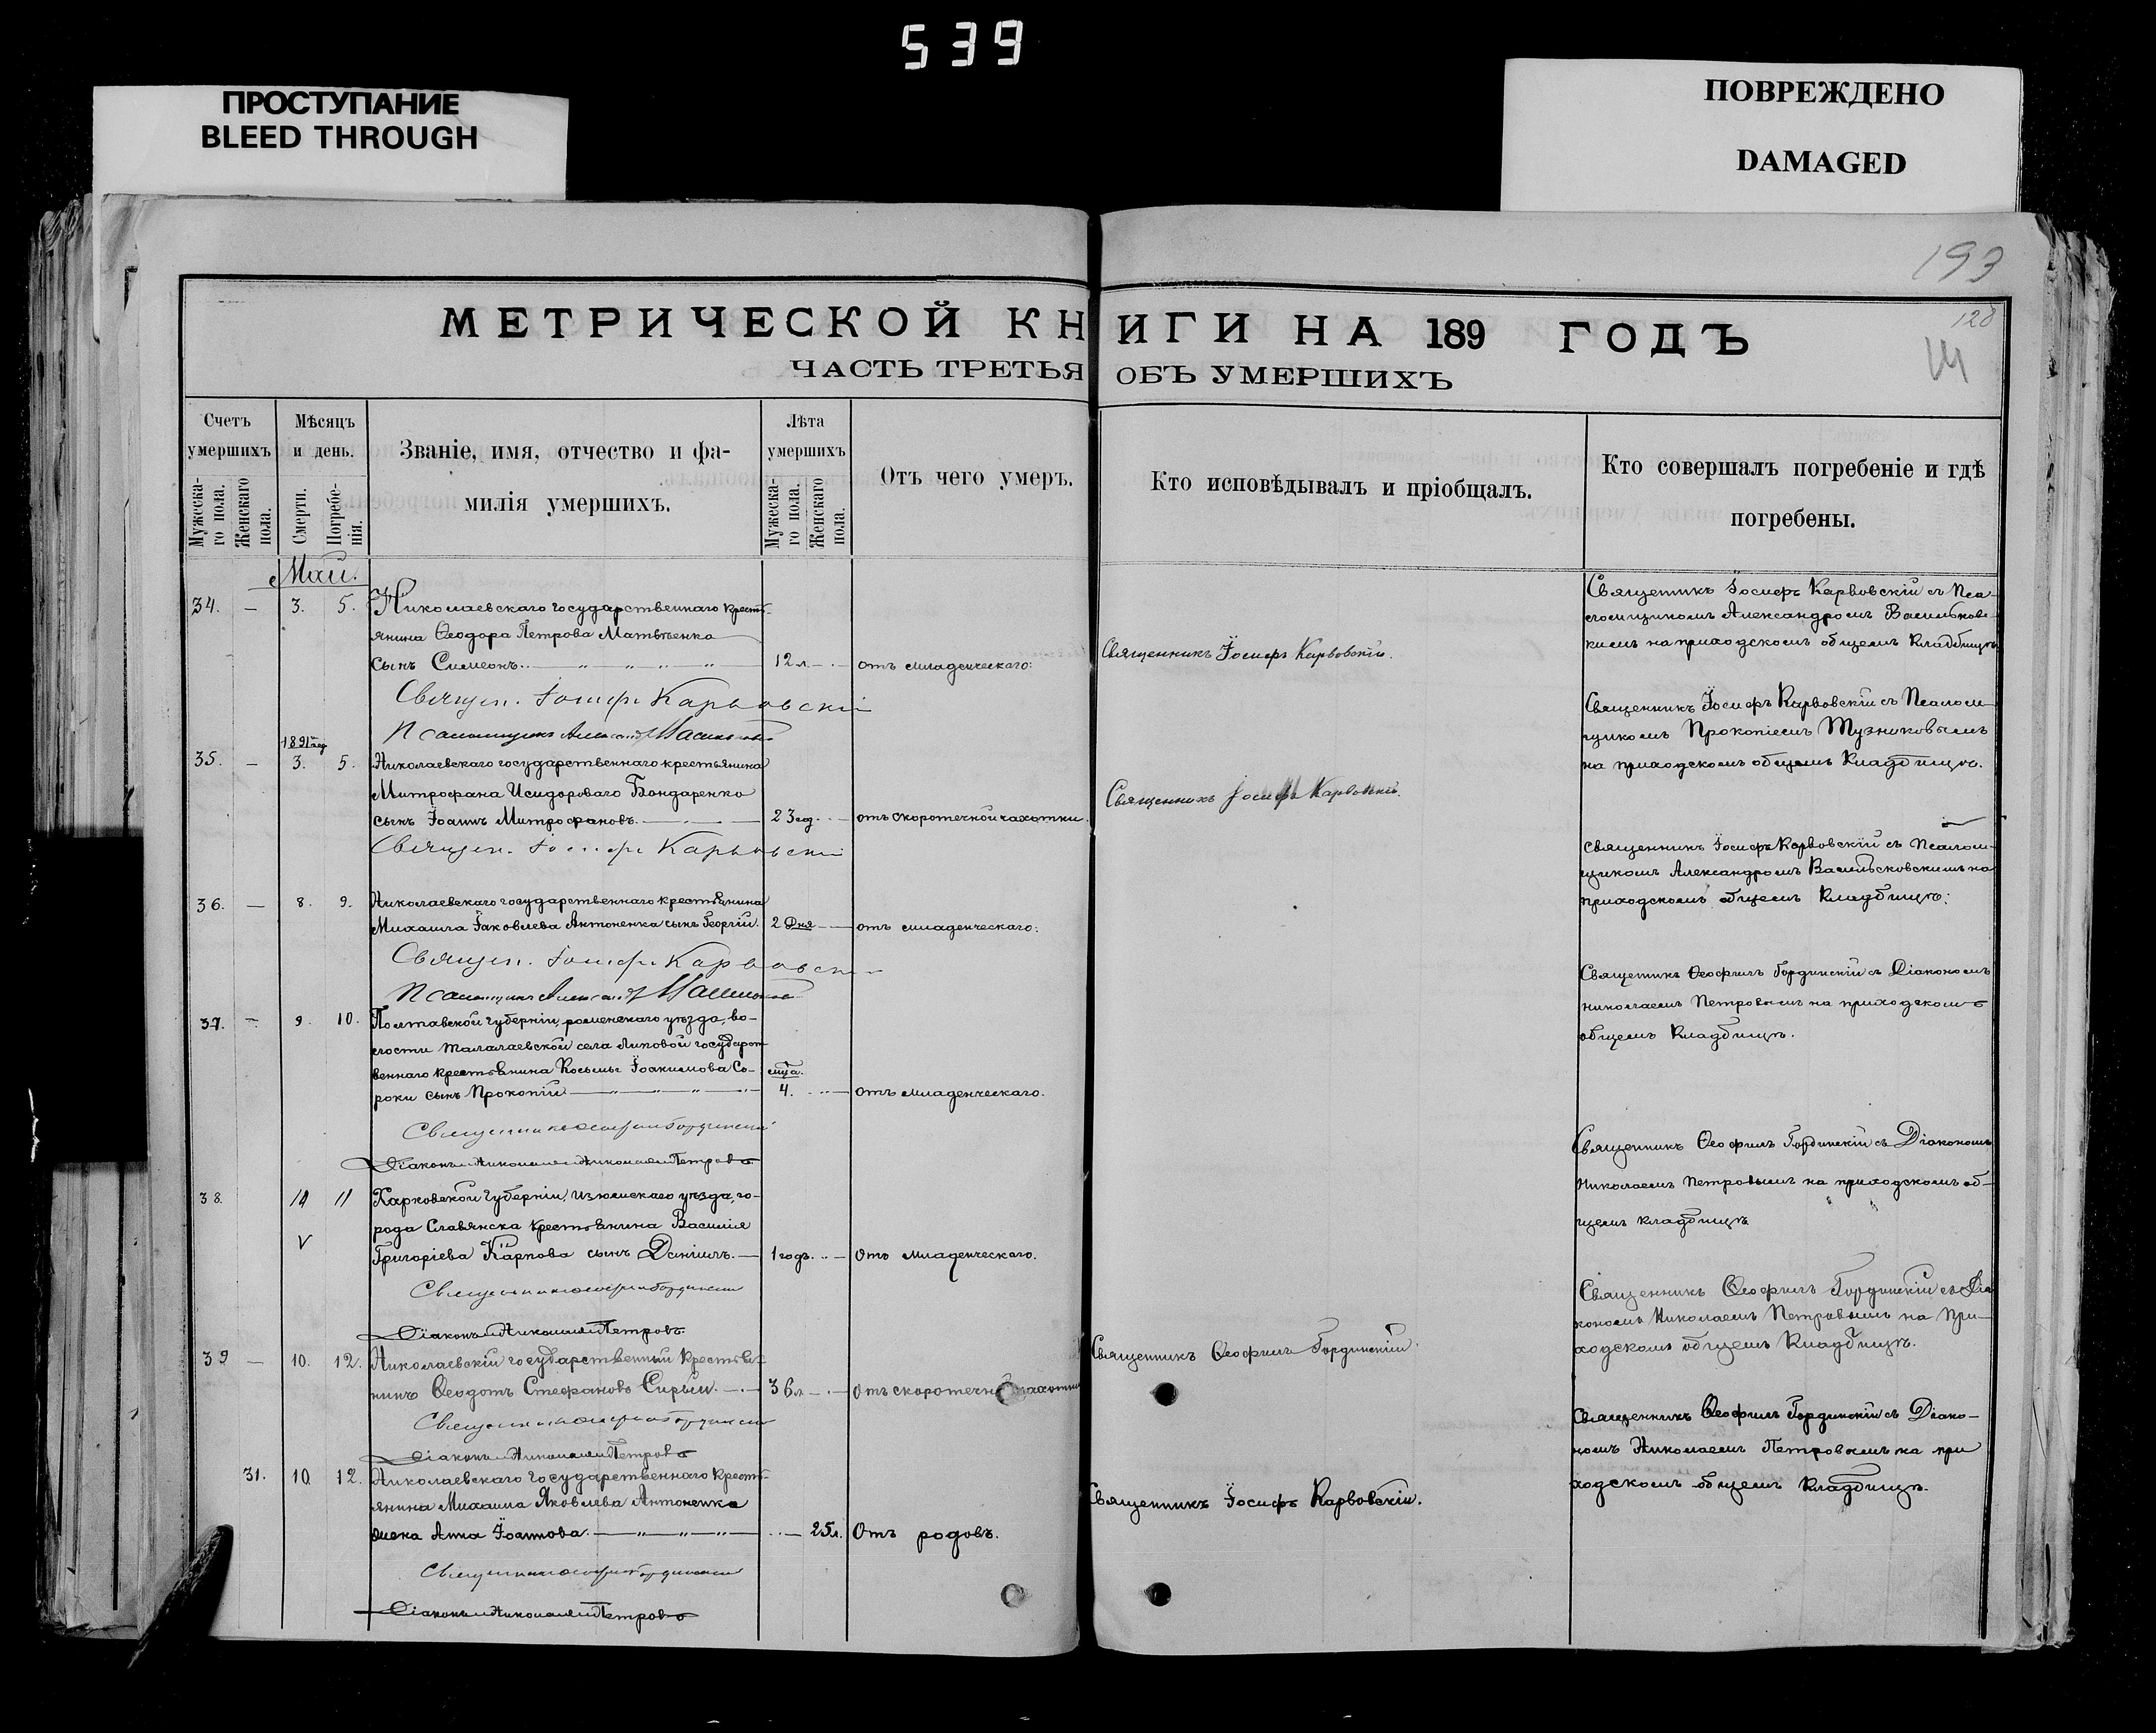 539
ПРОСТУПАНИЕ
BLEED THROUGH
ПОВРЕЖДЕНО
DAMAGED
193
128
МЕТРИЧЕСКОЙ КНИГИ НА 189 ГОДЪ
ЧАСТЬ ТРЕТЬЯ ОБЪ УМЕРШИХЪ
Счетъ умершихъ
Мужеска-
го пола.
Женскаго
пола.
Мѣсяцъ и день.
Смерти.
Погребе-
нія.
Званіе, имя, отчество и фа-
милія умершихъ.
Лѣта умершихъ
Мужеска-
го пола.
Женскаго
пола.
Отъ чего умеръ.
Кто исповѣдывалъ и пріобщалъ.
Кто совершалъ погребеніе и гдѣ
погребены.
Май.
34. — 3. 5. Николаевскаго государственнаго кресть-
янина Ѳеодора Петрова Матвѣенка
сынъ Симеонъ. 12 л. отъ младенческаго:
Священникъ Іосифъ Карвовскій.
Священникъ Іосифъ Карвовскій съ Пса-
ломщикомъ Александромъ Васильковс-
кимъ на приходскомъ общемъ кладбищѣ
Священ. Іосифъ Карвовскій
Псаломщикъ
1891 год
35. — 3. 5. Николаевскаго государственнаго крестьянина
Митрофана Исидороваго Бондаренко
сынъ Іоаннъ Митрофановъ. 23 год. отъ скоротечной чахотки.
Священникъ Іосифъ Карвовскій.
Священникъ Іосифъ Карвовскій съ Псалом-
щикомъ Прокопіемъ
на приходскомъ общемъ кладбищѣ.
Священ. Іосифъ Карвовскій
36. — 8. 9. Николаевскаго государственнаго крестьянина
Михаила Іаковлева Антоненка сынъ Георгій. 2 дня отъ младенческаго:
Священникъ Іосифъ Карвовскій съ Псалом-
щикомъ Александромъ на
приходскомъ общемъ кладбищѣ:
Священ. Іосифъ Карвовскій
Псаломщикъ
37. — 9. 10. Полтавской губерніи, роменскаго уѣзда, во-
лости Талалаевской села Липовой государст-
веннаго крестьянина Косьмы Іоакимова Со-
роки сынъ Прокопій 4. мца. отъ младенческаго.
Священникъ Ѳеофилъ Гординскій съ Діакономъ
Николаемъ Петровымъ на приходскомъ
общемъ кладбищѣ.
Священникъ Ѳеофилъ Гординскій
Діаконъ Николай Петровъ
38. 11 Харковской губерніи, изюмскаго уѣзда, го-
рода Славянска крестьянина Василія
Григоріева Карпова сынъ Даніилъ. 1 годъ. отъ младенческаго.
Священникъ Ѳеофилъ Гординскій съ Діакономъ
Николаемъ Петровымъ на приходскомъ об-
щемъ кладбищѣ
Священникъ Ѳеофилъ Гординскій
Діаконъ Николай Петровъ
39 — 10. 12. Николаевскій государственный крестья-
нинъ Ѳеодотъ Стефановъ Сирый. 36 л. отъ скоротечной чахотки
Священникъ Ѳеофилъ Гординскій.
Священникъ Ѳеофилъ Гординскій съ Діа
кономъ Николаемъ Петровымъ на при-
ходскомъ общемъ кладбищѣ.
Священникъ Ѳеофилъ Гординскій
Діаконъ Николай Петровъ
31. 10 12. Николаевскаго государственнаго кресть-
янина Михаила Яковлева Антоненка
жена Анна Іоаннова. 25 л. Отъ родовъ.
Священникъ Іосифъ Карвовскій.
Священникъ Ѳеофилъ Гординскій съ Діако-
номъ Николаемъ Петровымъ на при
ходскомъ общемъ кладбищѣ.
Священникъ Ѳеофилъ Гординскій
Діаконъ Николай Петровъ